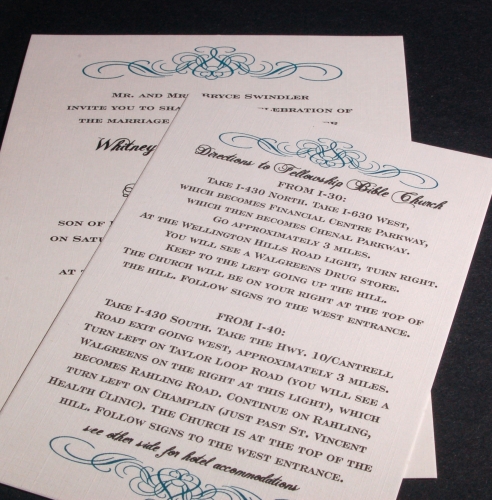 Mr. and Mrs. Bryce Swindler
invite you to celebration of
the marriage
Whitney
son of
on
at
Directions to Fellowship Bible Church
FROM I-30:
Take I-430 North. Take I-630 West,
which becomes Financial Centre Parkway,
which then becomes Chenal Parkway.
Go approximately 3 miles.
At the Wellington Hills Road light, turn right.
You will see a Walgreens Drug store.
Keep to the left going up the hill.
The Church will be on your right at the top of
the hill. Follow signs to the west entrance.
FROM I-40:
Take I-430 South. Take the Hwy. 10/Cantrell
Road exit going west, approximately 3 miles.
Turn left on Taylor Loop Road (you will see a
Walgreens on the right at this light), which
becomes Rahling Road. Continue on Rahling,
turn left on Champlin (just past St. Vincent
Health Clinic). The Church is at the top of the
hill. Follow signs to the west entrance.
see other side for hotel accommodations